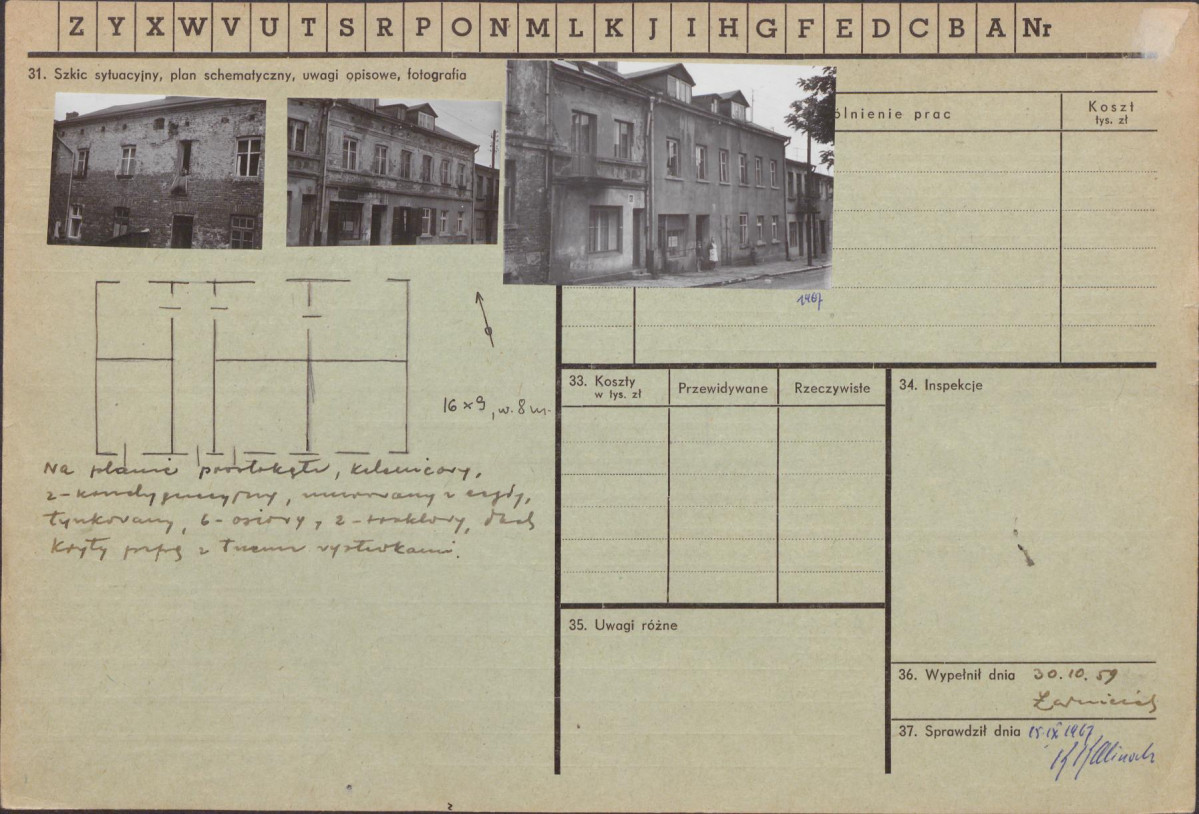 Z Y X W V U T S R P O N M L K J I H G F E D C B A Nr
31. Szkic sytuacyjny, plan schematyczny, uwagi opisowe, fotografia
lnienie prac
Koszt
tys. zł
1967
16 x 9, w. 8 m.
Na planie prostokąta,
2-kondygnacyjny, murowany z cegły,
tynkowany, 6-osiowy, 2-traktowy, dach
kryty papą z trzema wystawkami.
33. Koszty
w tys. zł
Przewidywane
Rzeczywiste
34. Inspekcje
35. Uwagi różne
36. Wypełnił dnia 30.10.59
37. Sprawdził dnia 15.IX.1967